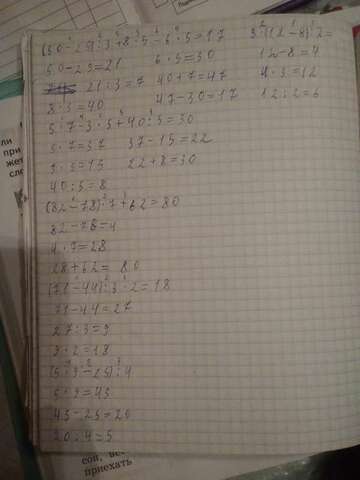 (50-29):3+8·5-6·5=17
50-29=21
21:3=7
8·5=40
6·5=30
40+7=47
47-30=17
3·(12-8):2=
12-8=4
4·3=12
12:2=6
5·7-3·5+40:5=30
5·7=37
3·5=15
40:5=8
37-15=22
22+8=30
(82-78)·7+62=80
82-78=4
4·7=28
28+62=80
(71-44):3·2=18
71-44=27
27:3=9
9·2=18
(5·9-25):4
5·9=45
45-25=20
20:4=5
ли
при
жет
сло
сон,
приехать